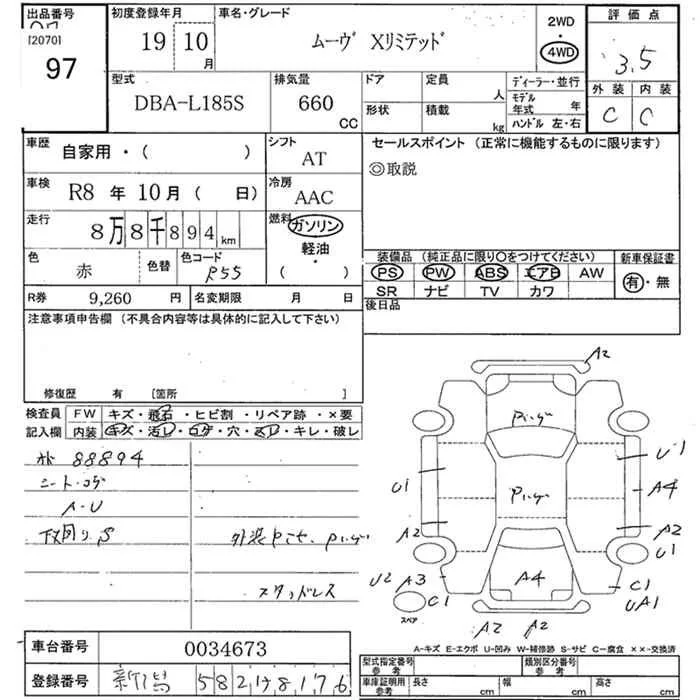 出品番号
[2070]
97
初度登録年月
19 10
月
車名・グレード
ムーヴ Xリミテッド
2WD
・
4WD
評価点
3.5
外装 内装
C C
型式
DBA-L185S
排気量
660
CC
ドア
形状
定員
人
積載
kg
ディーラー・並行
モデル
年式 年
ハンドル 左・右
車歴
自家用・( )
シフト
AT
セールスポイント (正常に機能するものに限ります)
◎取説
車検
R8 年 10 月 ( 日)
冷房
AAC
走行
8万8千894 km
燃料
ガソリン
・
軽油
・
( )
色
赤
色替
色コード
R55
装備品 (純正品に限り○をつけてください)
PS PW ABS エアB AW
SR ナビ TV カワ
新車保証書
有・無
R券 9,260 円
名変期限 月 日
後日品
注意事項申告欄 (不具合内容等は具体的に記入して下さい)
修復歴 有 [箇所 ]
検査員
記入欄
FW キズ・飛石・ヒビ割・リペア跡・×要
内装 キズ・汚レ・コゲ・穴・スレ・キレ・破レ
88894
シート・コゲ
A・U
下回り S
スタッドレス
A2
U1
A4
A2
U1
C1
UA1
U1
A2
U2 A3
C1
スペア
A4
A2 A2
A-キズ E-エクボ U-凹み W-補修跡 S-サビ C-腐食 ××-交換済
車台番号 0034673
登録番号 新潟 582 8176
型式指定番号
参考
類別区分番号
参考
車庫証明用
参考
長さ cm
幅 cm
高さ cm